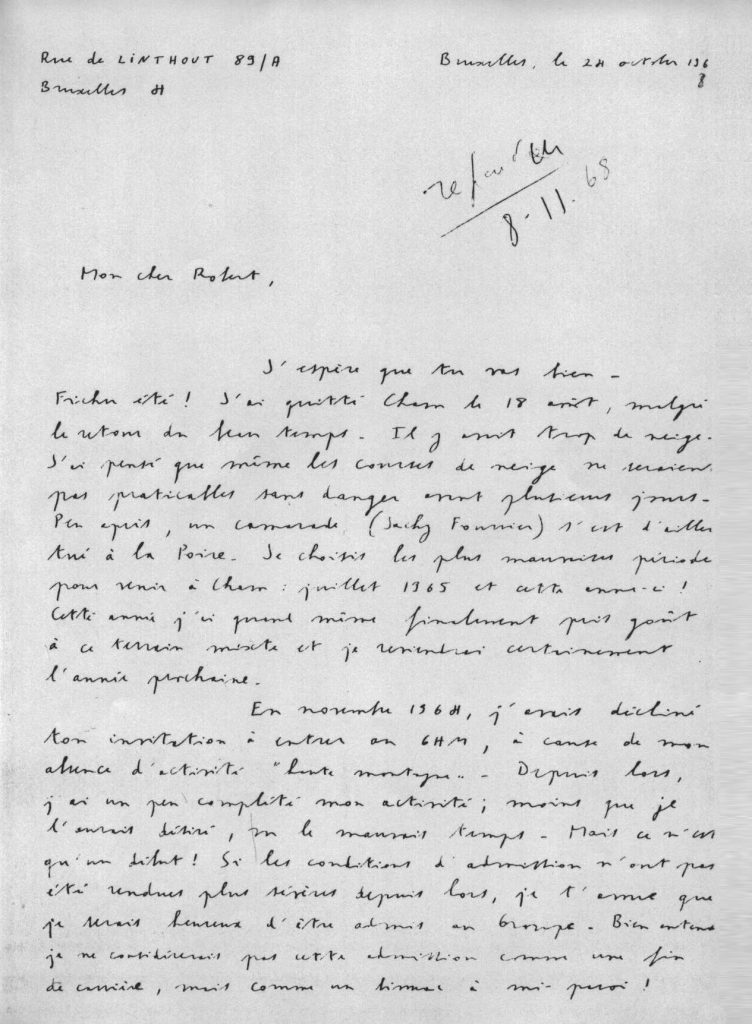 Rue de LINTHOUT 89/A
Bruxelles 4
Bruxelles, le 24 octobre 196
8
répondu
8-11.68
Mon cher Robert,
J'espère que tu vas bien -
Fichu été ! J'ai quitté Cham le 18 août, malgré
le retour du beau temps - Il y avait trop de neige -
J'ai pensé que même les courses de neige ne seraient
pas praticables sans danger avant plusieurs jours -
Peu après, un camarade (Jacky Fournier) s'est d'aille
tué à la Poire - Je choisis les plus mauvaises période
pour venir à Cham : juillet 1965 et cette année-ci !
Cette année j'ai quand même finalement pris goût
à ce terrain mixte et je reviendrai certainement
l'année prochaine -
En novembre 1964, j'avais décliné
ton invitation à entrer au GHM, à cause de mon
absence d'activité "haute montagne" - Depuis lors,
j'ai un peu complété mon activité ; moins que je
l'aurais désiré, vu le mauvais temps - Mais ce n'est
qu'un début ! Si les conditions d'admission n'ont pas
été rendues plus sévères depuis lors, je t'avoue que
je serais heureux d'être admis au Groupe - Bien entend
je ne considérerais pas cette admission comme une fin
de carrière, mais comme un bivouac à mi-paroi !